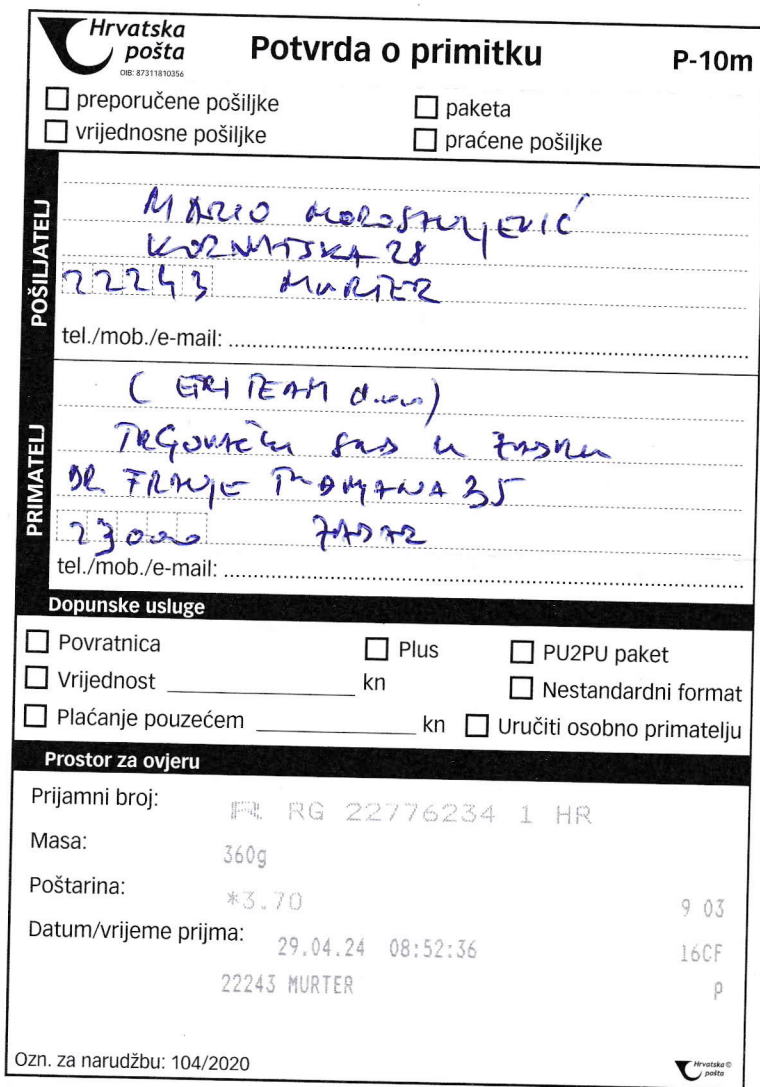 Hrvatska pošta
OIB: 87311810356
Potvrda o primitku
P-10m
preporučene pošiljke
paketa
vrijednosne pošiljke
praćene pošiljke
POŠILJATELJ
MARIO
KORNATSKA 28
22243 MURTER
tel./mob./e-mail:
PRIMATELJ
( TEAM d.o.o.)
TRGOVAČKI SUD U ZADRU
DR. FRANJE TUĐMANA 35
23000 ZADAR
tel./mob./e-mail:
Dopunske usluge
Povratnica
Plus
PU2PU paket
Vrijednost kn
Nestandardni format
Plaćanje pouzećem kn
Uručiti osobno primatelju
Prostor za ovjeru
Prijamni broj: R RG 22776234 1 HR
Masa: 360g
Poštarina: *3.70 9 03
Datum/vrijeme prijma: 29.04.24 08:52:36 16CF
22243 MURTER P
Ozn. za narudžbu: 104/2020
Hrvatska pošta